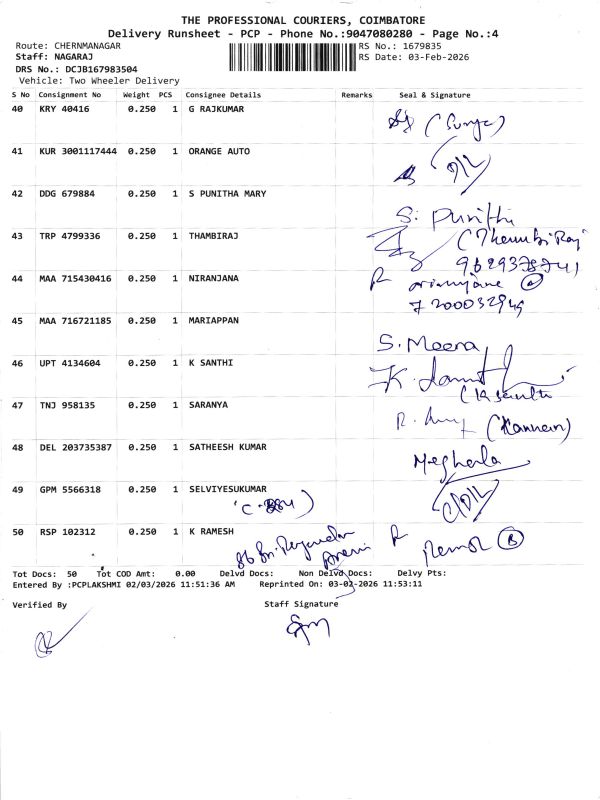 THE PROFESSIONAL COURIERS, COIMBATORE
Delivery Runsheet - PCP - Phone No.:9047080280 - Page No.:4
Route: CHERNMANAGAR RS No.: 1679835
Staff: NAGARAJ RS Date: 03-Feb-2026
DRS No.: DCJB167983504
Vehicle: Two Wheeler Delivery
S No Consignment No Weight PCS Consignee Details Remarks Seal & Signature
40 KRY 40416 0.250 1 G RAJKUMAR
(Surya)
41 KUR 3001117444 0.250 1 ORANGE AUTO
42 DDG 679884 0.250 1 S PUNITHA MARY
S. Punitha
43 TRP 4799336 0.250 1 THAMBIRAJ
(Thambi Raj
44 MAA 715430416 0.250 1 NIRANJANA
7200032949
45 MAA 716721185 0.250 1 MARIAPPAN
S. Meena
46 UPT 4134604 0.250 1 K SANTHI
47 TNJ 958135 0.250 1 SARANYA
(Kannan)
48 DEL 203735387 0.250 1 SATHEESH KUMAR
Meghala
49 GPM 5566318 0.250 1 SELVIYESUKUMAR
50 RSP 102312 0.250 1 K RAMESH
Ramesh B
Tot Docs: 50 Tot COD Amt: 0.00 Delvd Docs: Non Delvd Docs: Delvy Pts:
Entered By :PCPLAKSHMI 02/03/2026 11:51:36 AM Reprinted On: 03-02-2026 11:53:11
Verified By Staff Signature